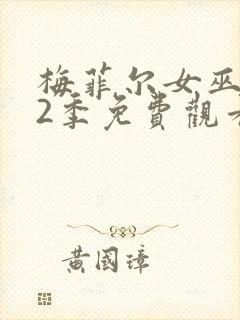 梅菲尔女巫
2季免費觀看
黄國璋